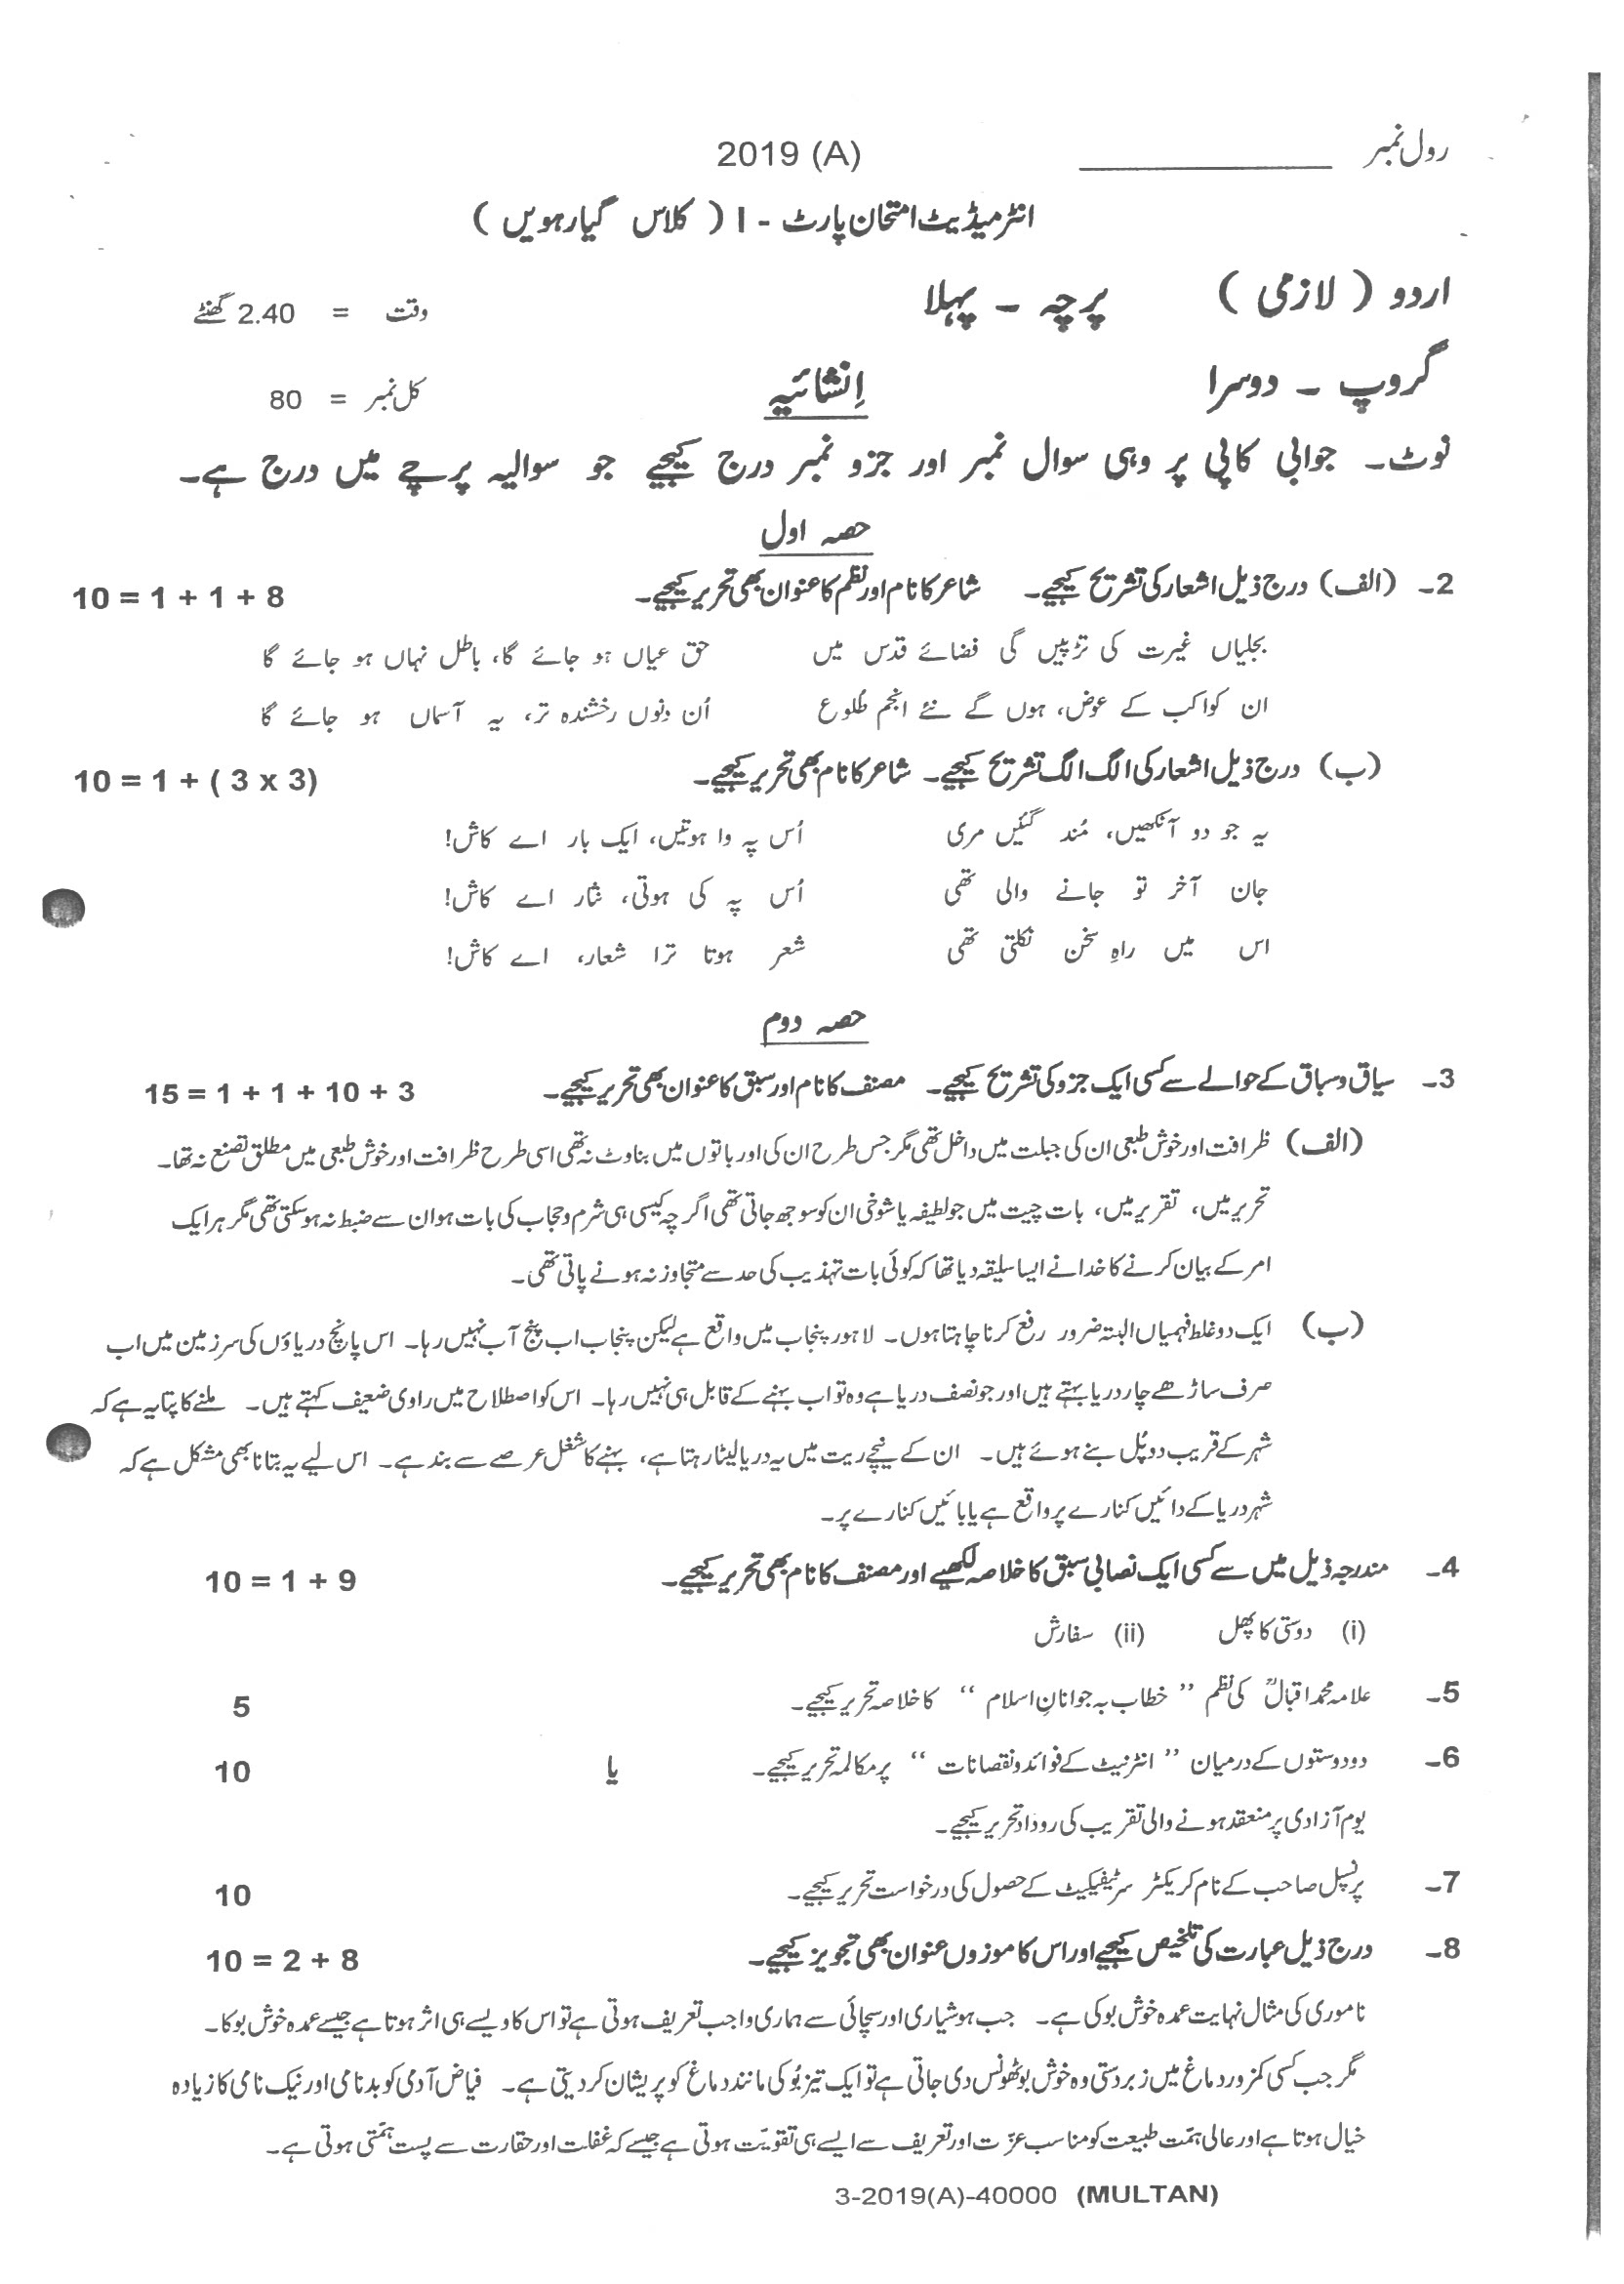 رول نمبر ____________ 2019 (A)
انٹرمیڈیٹ امتحان پارٹ - I ( کلاس گیارہویں )
اردو ( لازمی ) پرچہ ۔ پہلا وقت = 2.40 گھنٹے
گروپ ۔ دوسرا اِنشائیہ کل نمبر = 80
نوٹ۔ جوابی کاپی پر وہی سوال نمبر اور جزو نمبر درج کیجیے جو سوالیہ پرچے میں درج ہے۔
حصہ اول
2۔ (الف) درج ذیل اشعار کی تشریح کیجیے۔ شاعر کا نام اور نظم کا عنوان بھی تحریر کیجیے۔ 10 = 1 + 1 + 8
بجلیاں غیرت کی تڑپیں گی فضائے قدس میں حق عیاں ہو جائے گا، باطل نہاں ہو جائے گا
ان کواکب کے عوض، ہوں گے نئے انجم طلُوع اُن دنوں رخشندہ تر، یہ آسماں ہو جائے گا
(ب) درج ذیل اشعار کی الگ الگ تشریح کیجیے۔ شاعر کا نام بھی تحریر کیجیے۔ 10 = 1 + ( 3 x 3)
یہ جو دو آنکھیں، مُند گئیں مری اُس پہ وا ہوتیں، ایک بار اے کاش!
جان آخر تو جانے والی تھی اُس پہ کی ہوتی، نثار اے کاش!
اس میں راہِ سخن نکلتی تھی شعر ہوتا ترا شعار، اے کاش!
حصہ دوم
3۔ سیاق و سباق کے حوالے سے کسی ایک جزو کی تشریح کیجیے۔ مصنف کا نام اور سبق کا عنوان بھی تحریر کیجیے۔ 15 = 1 + 1 + 10 + 3
(الف) ظرافت اور خوش طبعی ان کی جبلت میں داخل تھی مگر جس طرح ان کی اور باتوں میں بناوٹ نہ تھی اسی طرح ظرافت اور خوش طبعی میں مطلق تصنع نہ تھا۔
تحریر میں، تقریر میں، بات چیت میں جو لطیفہ یا شوخی ان کو سوجھ جاتی تھی اگرچہ کیسی ہی شرم و حجاب کی بات ہو ان سے ضبط نہ ہو سکتی تھی مگر ہر ایک
امر کے بیان کرنے کا خدا نے ایسا سلیقہ دیا تھا کہ کوئی بات تہذیب کی حد سے متجاوز نہ ہونے پاتی تھی۔
(ب) ایک دو غلط فہمیاں البتہ ضرور رفع کرنا چاہتا ہوں۔ لاہور پنجاب میں واقع ہے لیکن پنجاب اب پنج آب نہیں رہا۔ اس پانچ دریاؤں کی سرزمین میں اب
صرف ساڑھے چار دریا بہتے ہیں اور جو نصف دریا ہے وہ تو اب بہنے کے قابل ہی نہیں رہا۔ اس کو اصطلاح میں راوی ضعیف کہتے ہیں۔ ملنے کا پتا یہ ہے کہ
شہر کے قریب دو پُل بنے ہوئے ہیں۔ ان کے نیچے ریت میں یہ دریا لیٹا رہتا ہے، بہنے کا شغل عرصے سے بند ہے۔ اس لیے یہ بتانا بھی مشکل ہے کہ
شہر دریا کے دائیں کنارے پر واقع ہے یا بائیں کنارے پر۔
4۔ مندرجہ ذیل میں سے کسی ایک نصابی سبق کا خلاصہ لکھیے اور مصنف کا نام بھی تحریر کیجیے۔ 10 = 1 + 9
(i) دوستی کا پھل (ii) سفارش
5۔ علامہ محمد اقبالؒ کی نظم ’’ خطاب بہ جوانانِ اسلام ‘‘ کا خلاصہ تحریر کیجیے۔ 5
6۔ دو دوستوں کے درمیان ’’ انٹرنیٹ کے فوائد و نقصانات ‘‘ پر مکالمہ تحریر کیجیے۔ یا 10
یوم آزادی پر منعقد ہونے والی تقریب کی روداد تحریر کیجیے۔
7۔ پرنسپل صاحب کے نام کریکٹر سرٹیفیکیٹ کے حصول کی درخواست تحریر کیجیے۔ 10
8۔ درج ذیل عبارت کی تلخیص کیجیے اور اس کا موزوں عنوان بھی تجویز کیجیے۔ 10 = 2 + 8
ناموری کی مثال نہایت عمدہ خوش بو کی ہے۔ جب ہوشیاری اور سچائی سے ہماری واجب تعریف ہوتی ہے تو اس کا ویسے ہی اثر ہوتا ہے جیسے عمدہ خوش بو کا۔
مگر جب کسی کمزور دماغ میں زبردستی وہ خوش بو ٹھونس دی جاتی ہے تو ایک تیز بُو کی مانند دماغ کو پریشان کر دیتی ہے۔ فیاض آدمی کو بدنامی اور نیک نامی کا زیادہ
خیال ہوتا ہے اور عالی ہمّت طبیعت کو مناسب عزّت اور تعریف سے ایسے ہی تقویّت ہوتی ہے جیسے کہ غفلت اور حقارت سے پست ہمّتی ہوتی ہے۔
3-2019(A)-40000 (MULTAN)